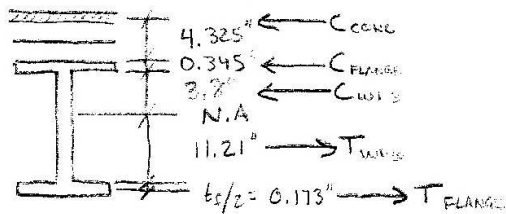 4.325" ← C CONC
0.345" ← C FLANGE
3.8" ← C WEB
N.A
11.21" → T WEB
tf/2 = 0.173" → T FLANGE